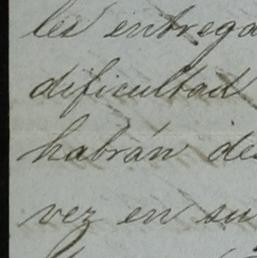 les entrega
dificultad
habrán de
vez en su